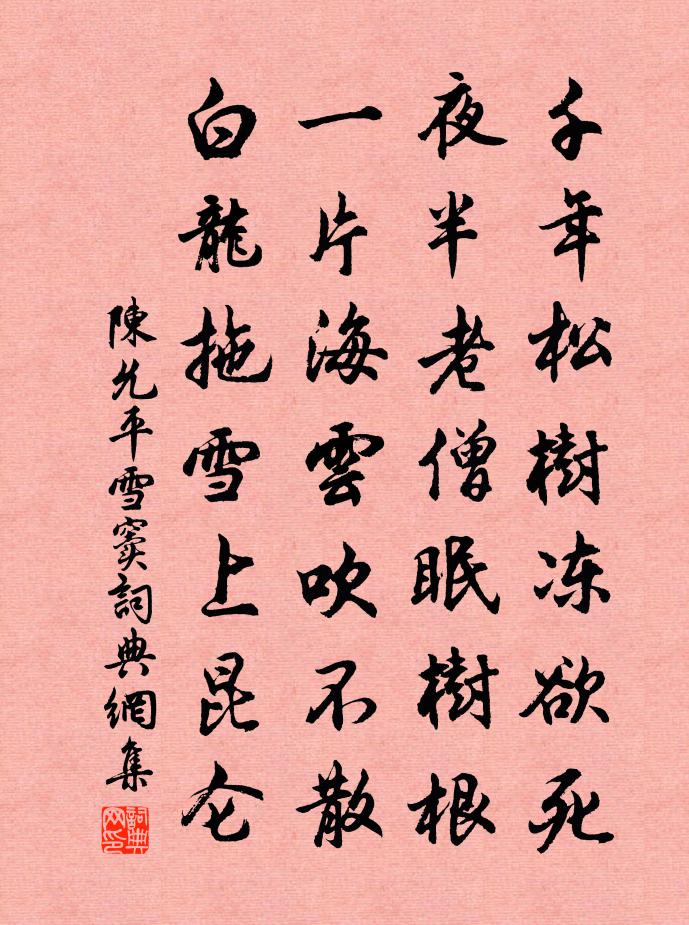 千年松樹冻欲死
夜半老僧眠樹根
一片海雲吹不散
白龍拖雪上昆仑
陳允平雪窦詞典網集
詞典
网印